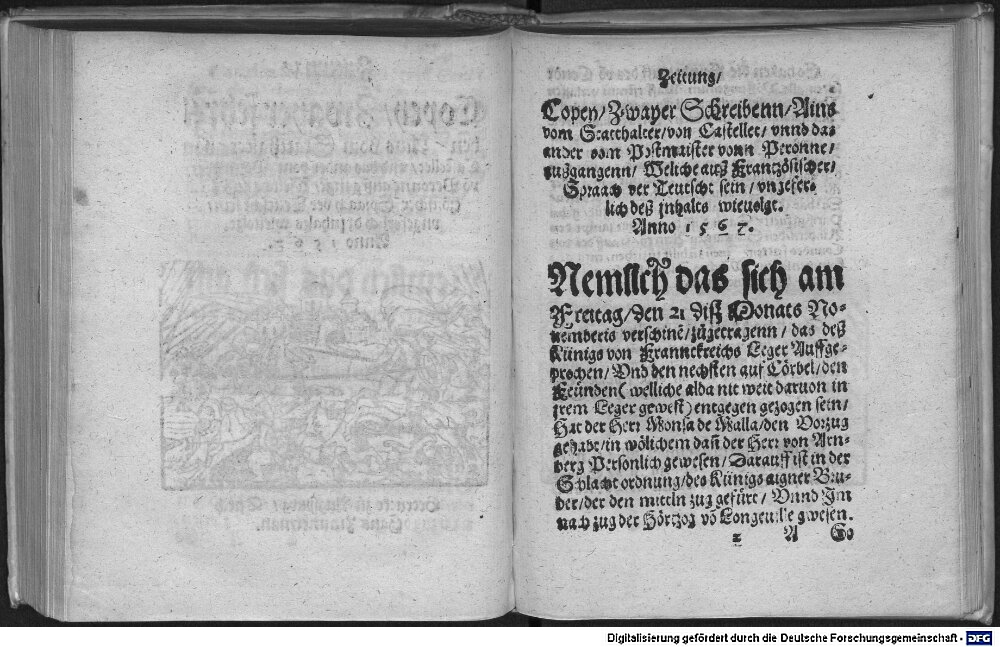 Zeitung/
Copey/Zwayer Schreibenn/Ains
vom Statthalter/von Castellet/vnnd das
ander vom Postmaister vonn Peronne/
außgangenn/Weliche auß Frantzösischer/
Spraach ver Teutscht sein/vngefer-
lich deß jnhalts wieuolgt.
Anno 1567.
Nemlich das sich am
Freitag/den 21 diß Monats No-
uemberis verschinē/zůgetragenn/das deß
Künigs von Franckreichs Leger Auffge-
prochen/Vnd den nechsten auf Cörbel/den
Feünden(welliche alda nit weit daruon in
jrem Leger gewest)entgegen gezogen sein/
Hat der Herr Monsa de Malla/den Vorzug
gehabt/in wölichem dañ der Herr von Arn-
berg Persönlich gewesen/Darauff ist in der
Schlacht ordnung/des Künigs aigner Bru-
der/der den mittln zug gefürt/Vnnd Im
nach zug der Hörtzog vō Longeuille gwesen.
A So
Digitalisierung gefördert durch die Deutsche Forschungsgemeinschaft - DFG